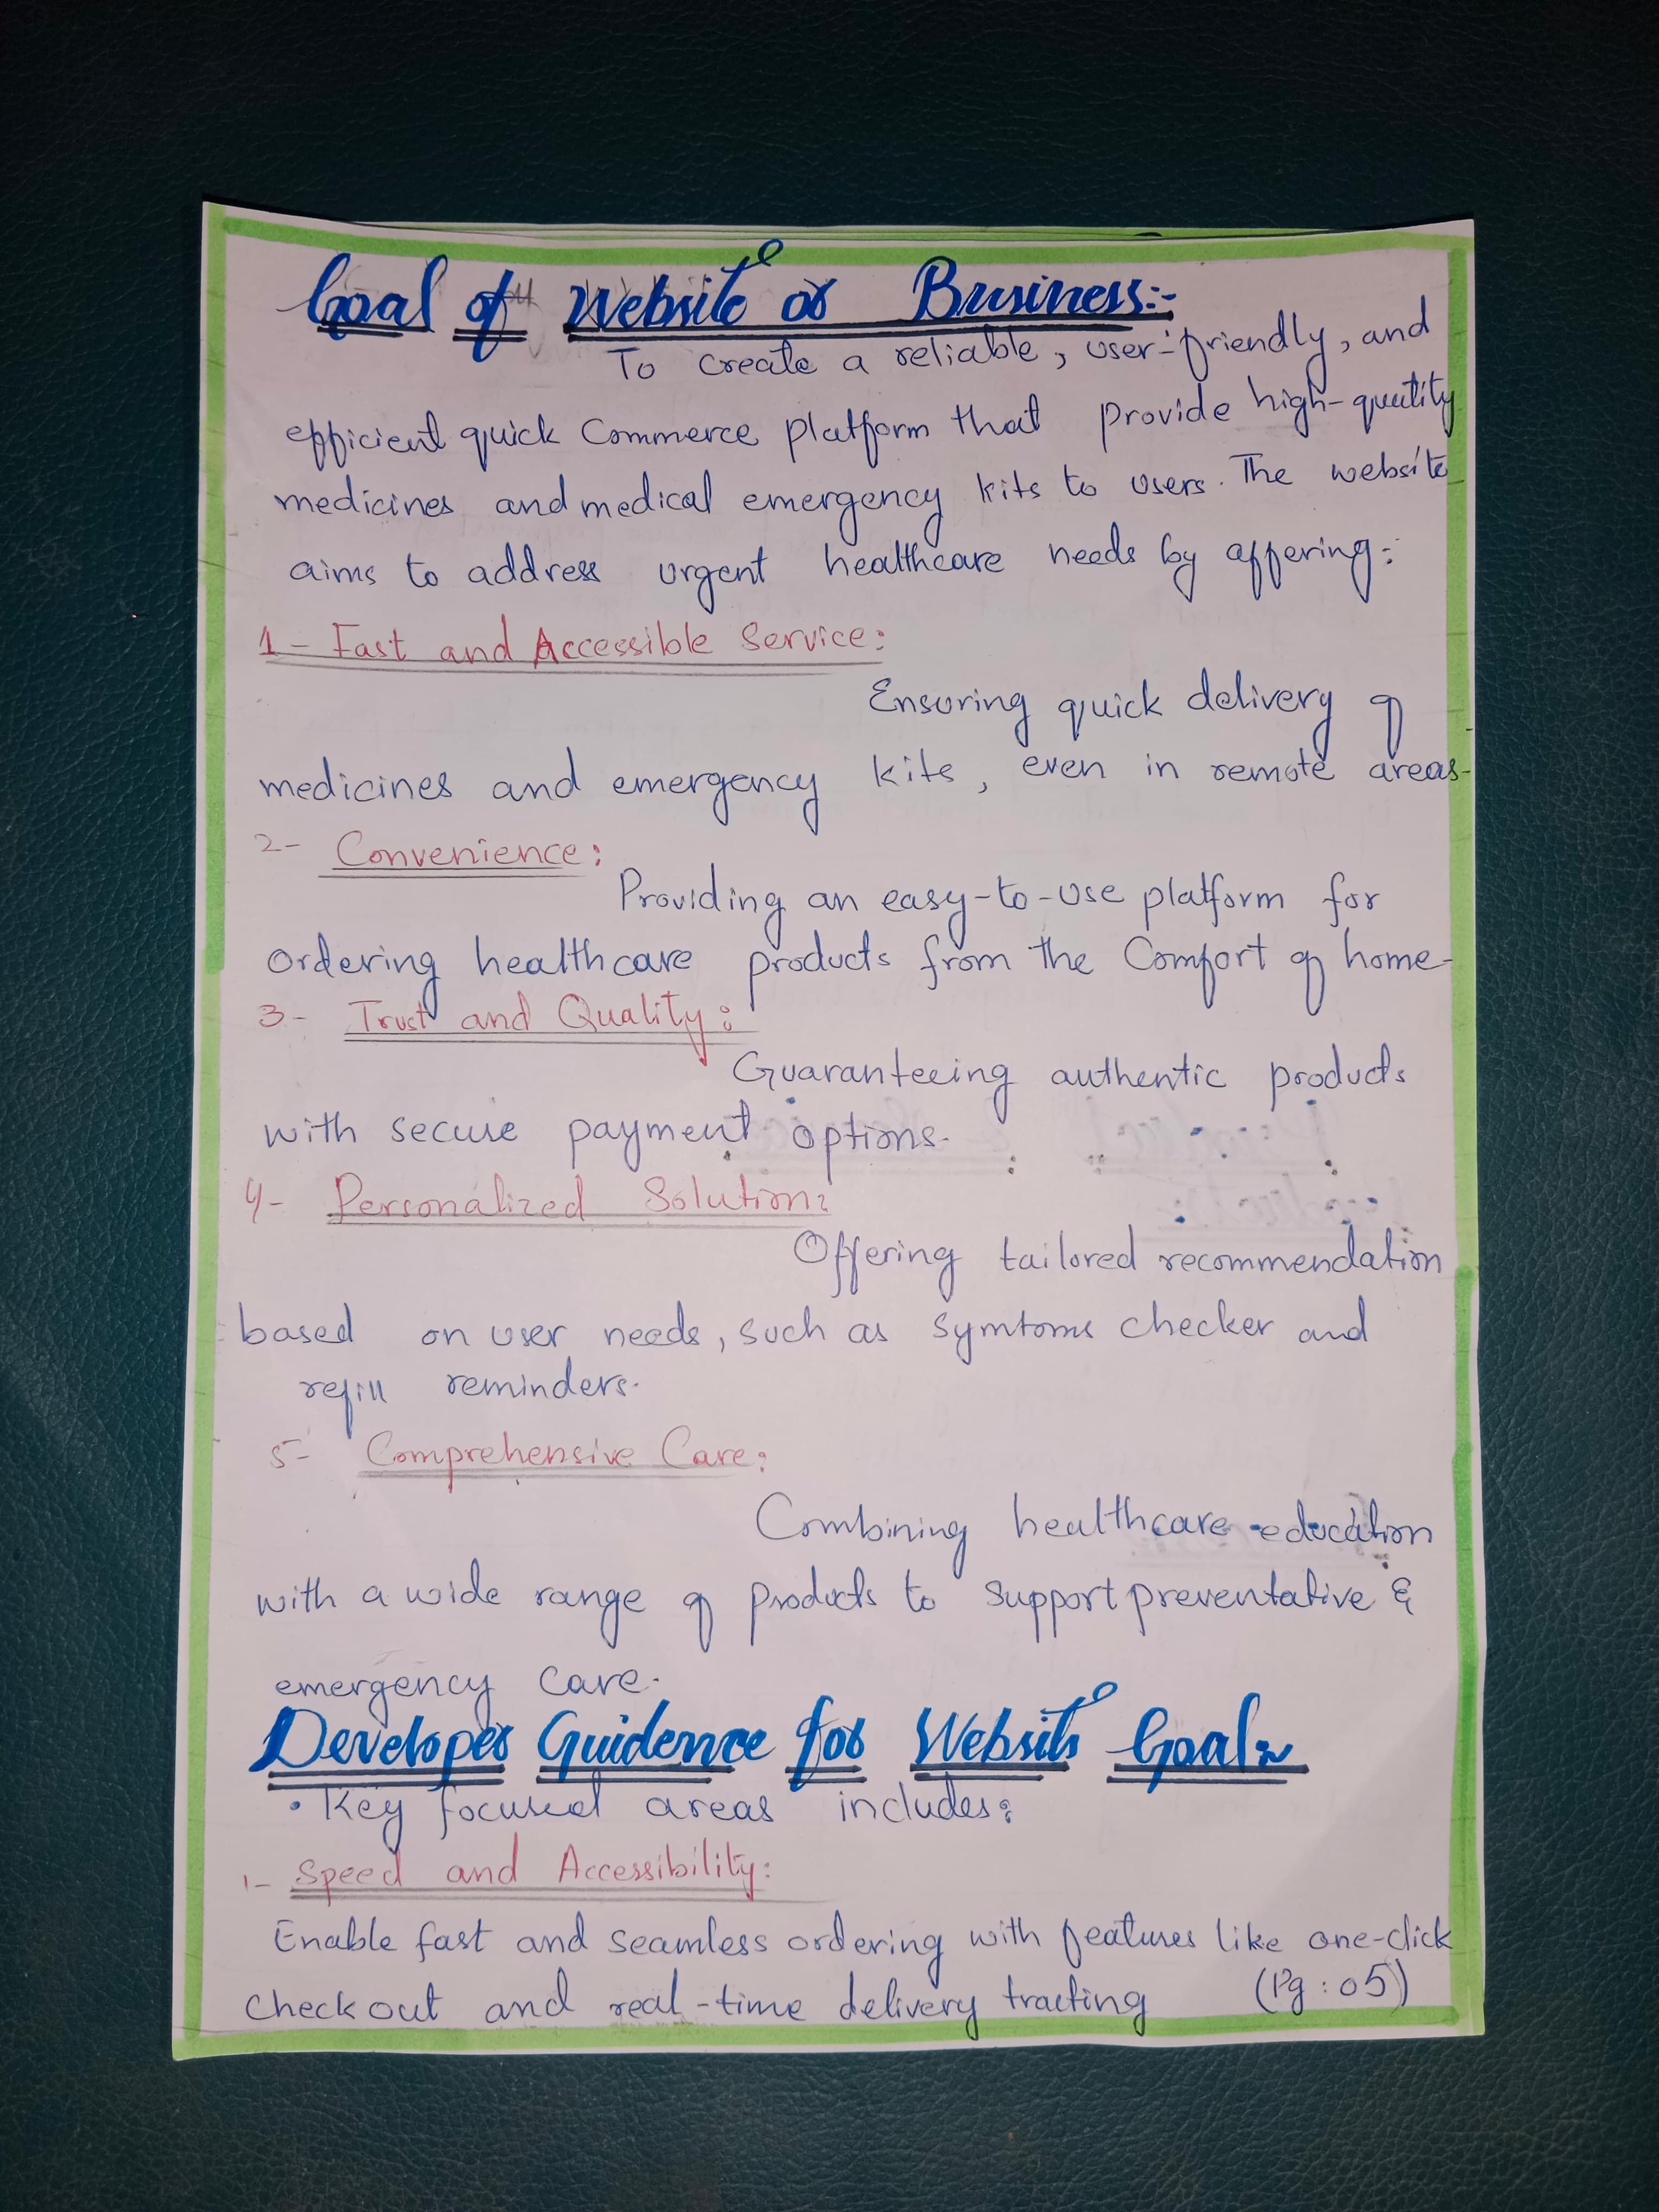 Goal of Website or Business:-
To create a reliable, user-friendly, and
efficient quick Commerce platform that provide high-quality
medicines and medical emergency kits to users. The website
aims to address urgent healthcare needs by offering:
1- Fast and Accessible Service:
Ensuring quick delivery of
medicines and emergency kits, even in remote areas-
2- Convenience:
Providing an easy-to-use platform for
ordering healthcare products from the Comfort of home-
3- Trust and Quality:
Guaranteeing authentic products
with secure payment options.
4- Personalized Solution:
Offering tailored recommendation
based on user needs, such as symtoms checker and
refill reminders.
5- Comprehensive Care:
Combining healthcare education
with a wide range of products to support preventative &
emergency care.
Developer Guidence for Website Goal:~
• Key focused areas includes:
1- Speed and Accessibility:
Enable fast and seamless ordering with features like one-click
checkout and real-time delivery tracting (Pg:05)